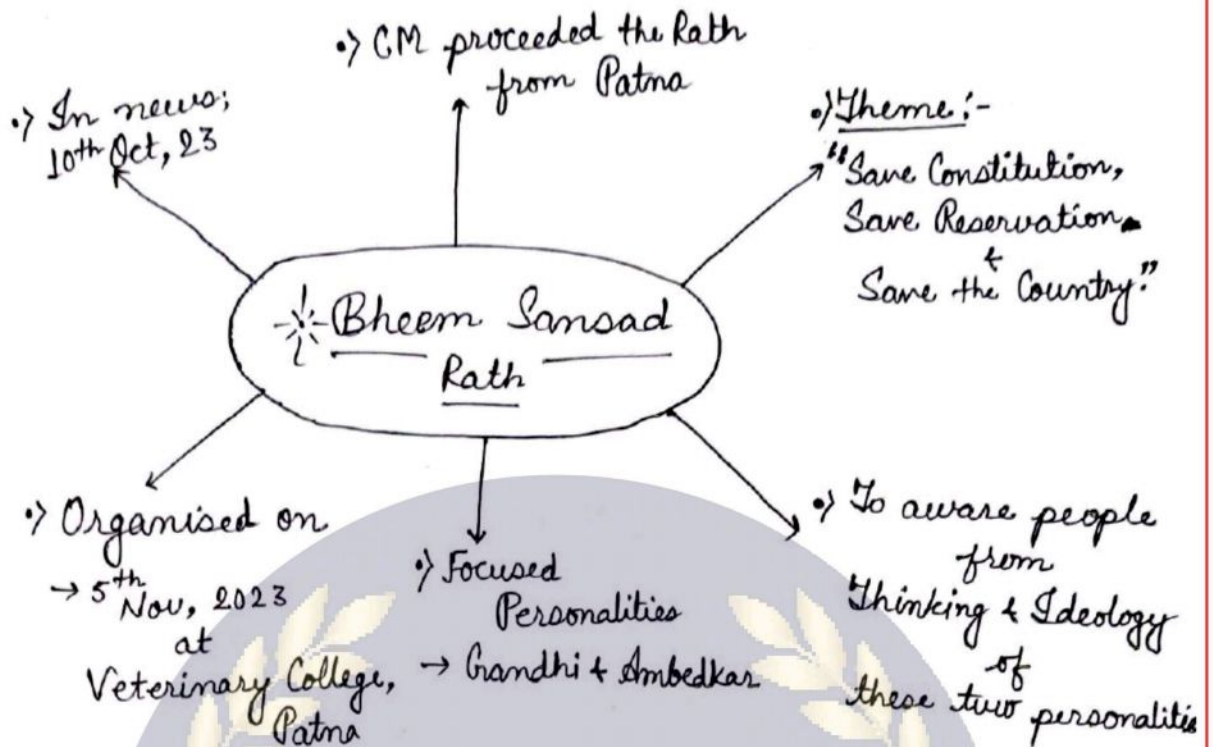 •> In news;
10th Oct, 23
•> CM proceeded the Rath
from Patna
•> Theme:-
"Save Constitution,
Save Reservation
&
Save the Country."
Bheem Sansad
Rath
•> Organised on
→ 5th Nov, 2023
at
Veterinary College,
Patna
•> Focused
Personalities
→ Gandhi & Ambedkar
•> To aware people
from
Thinking & Ideology
of
these two personalitis